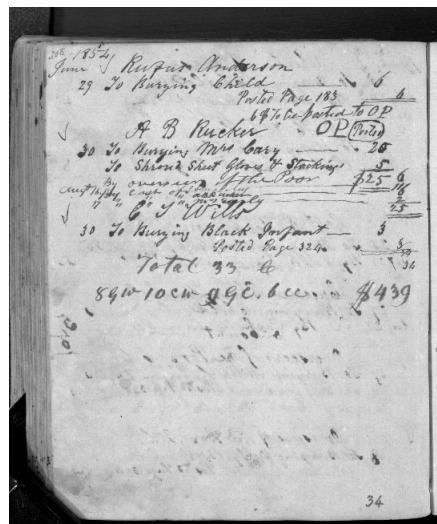 1854
June Rufus Anderson
29 To Burying Child 6
Posted Page 183 6
6 $ To be posted to OP
A B Rucker OP Posted
30 To Burying Mrs Cary 20
To Shroud Sheet Gloves & Stockings 5
By overseers of the Poor $25 6
25
C Y Wills
30 To Burying Black Infant 3
Posted Page 324 3
Total 33 34
8 GW 10 CW 9 GC. 6 CC. $439
34